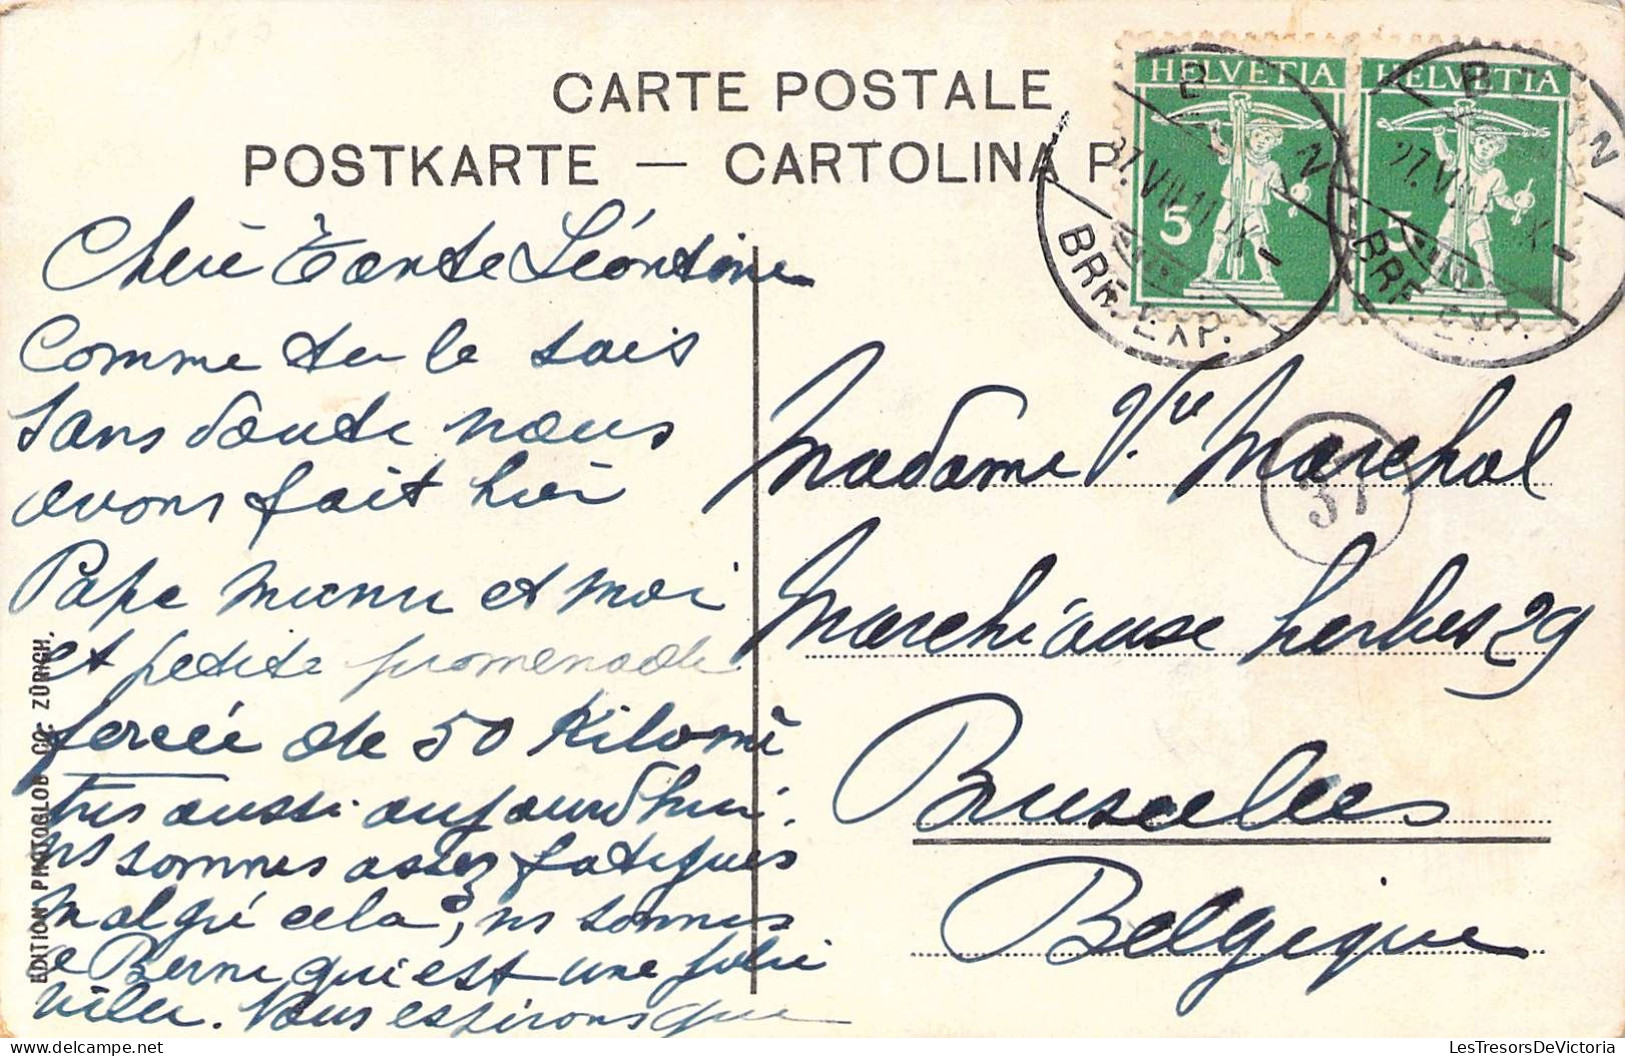 CARTE POSTALE
POSTKARTE — CARTOLINA P
HELVETIA
5
HELVETIA
5
BERN
27.VII.11
BRF. EXP.
BERN
27.VII
BRF. EXP.
37
Chère Tante Léontine
Comme tu le sais
sans doute nous
avons fait hier
Papa et moi
et petite promenade
forcée de 50 Kilomè
tres aussi aujourd'hui.
ns sommes assez fatigués
malgré cela, ns sommes
à Berne qui est une jolie
ville. Nous espérons que
Madame Vve Marchal
Marché aux herbes 29
Bruxelles
Belgique
EDITION PHOTOGLOB CO. ZÜRICH.
LesTresorsDeVictoria